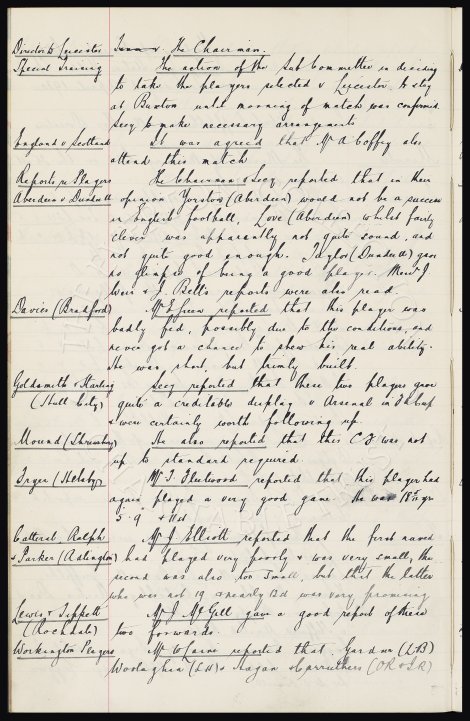 Director to Leicester
v. The Chairman.
Special Training
The action of the Sub Committee in deciding
to take the players selected v Leicester, to stay
at Buxton until morning of match was confirmed
Secy to make necessary arrangements
England v Scotland
It was agreed that Mr A Coffey also
attend this match
Reports re Players
The Chairman & Secy reported that in their
Aberdeen v Dundee U
opinion Yorston (Aberdeen) would not be a success
in English football, Love (Aberdeen) whilst fairly
clever was apparently not quite sound, and
not quite good enough. Taylor (Dundee U) gave
no glimpse of being a good player. Messrs J
Weir & J Bell's reports were also read.
Davies (Bradford)
Mr E Green reported that this player was
badly fed, possibly due to the conditions, and
never got a chance to show his real ability.
He was short, but firmly built.
Goldsmith & Starling
Secy reported that these two players gave
(Hull City)
quite a creditable display v Arsenal in Eng Cup
& were certainly worth following up.
Mound (Shrewsbury)
He also reported that this C.F was not
up to standard required.
(Helsby)
Mr T. Fleetwood reported that this player had
again played a very good game. He was 18½ yrs
5-9" & 11st
Catterall, Ralph
Mr J Elliott reported that the first named
& Parker (Adlington)
had played very poorly & was very small, the
second was also too small, but that the latter
who was not 19 & nearly 13st was very promising
Lewis & Tippett
Mr J. McGill gave a good report of these
(Rochdale)
two forwards.
Workington Players
Mr W Caine reported that Gardner (L.B)
(L.H) & & Carruthers (O.R & I.R)